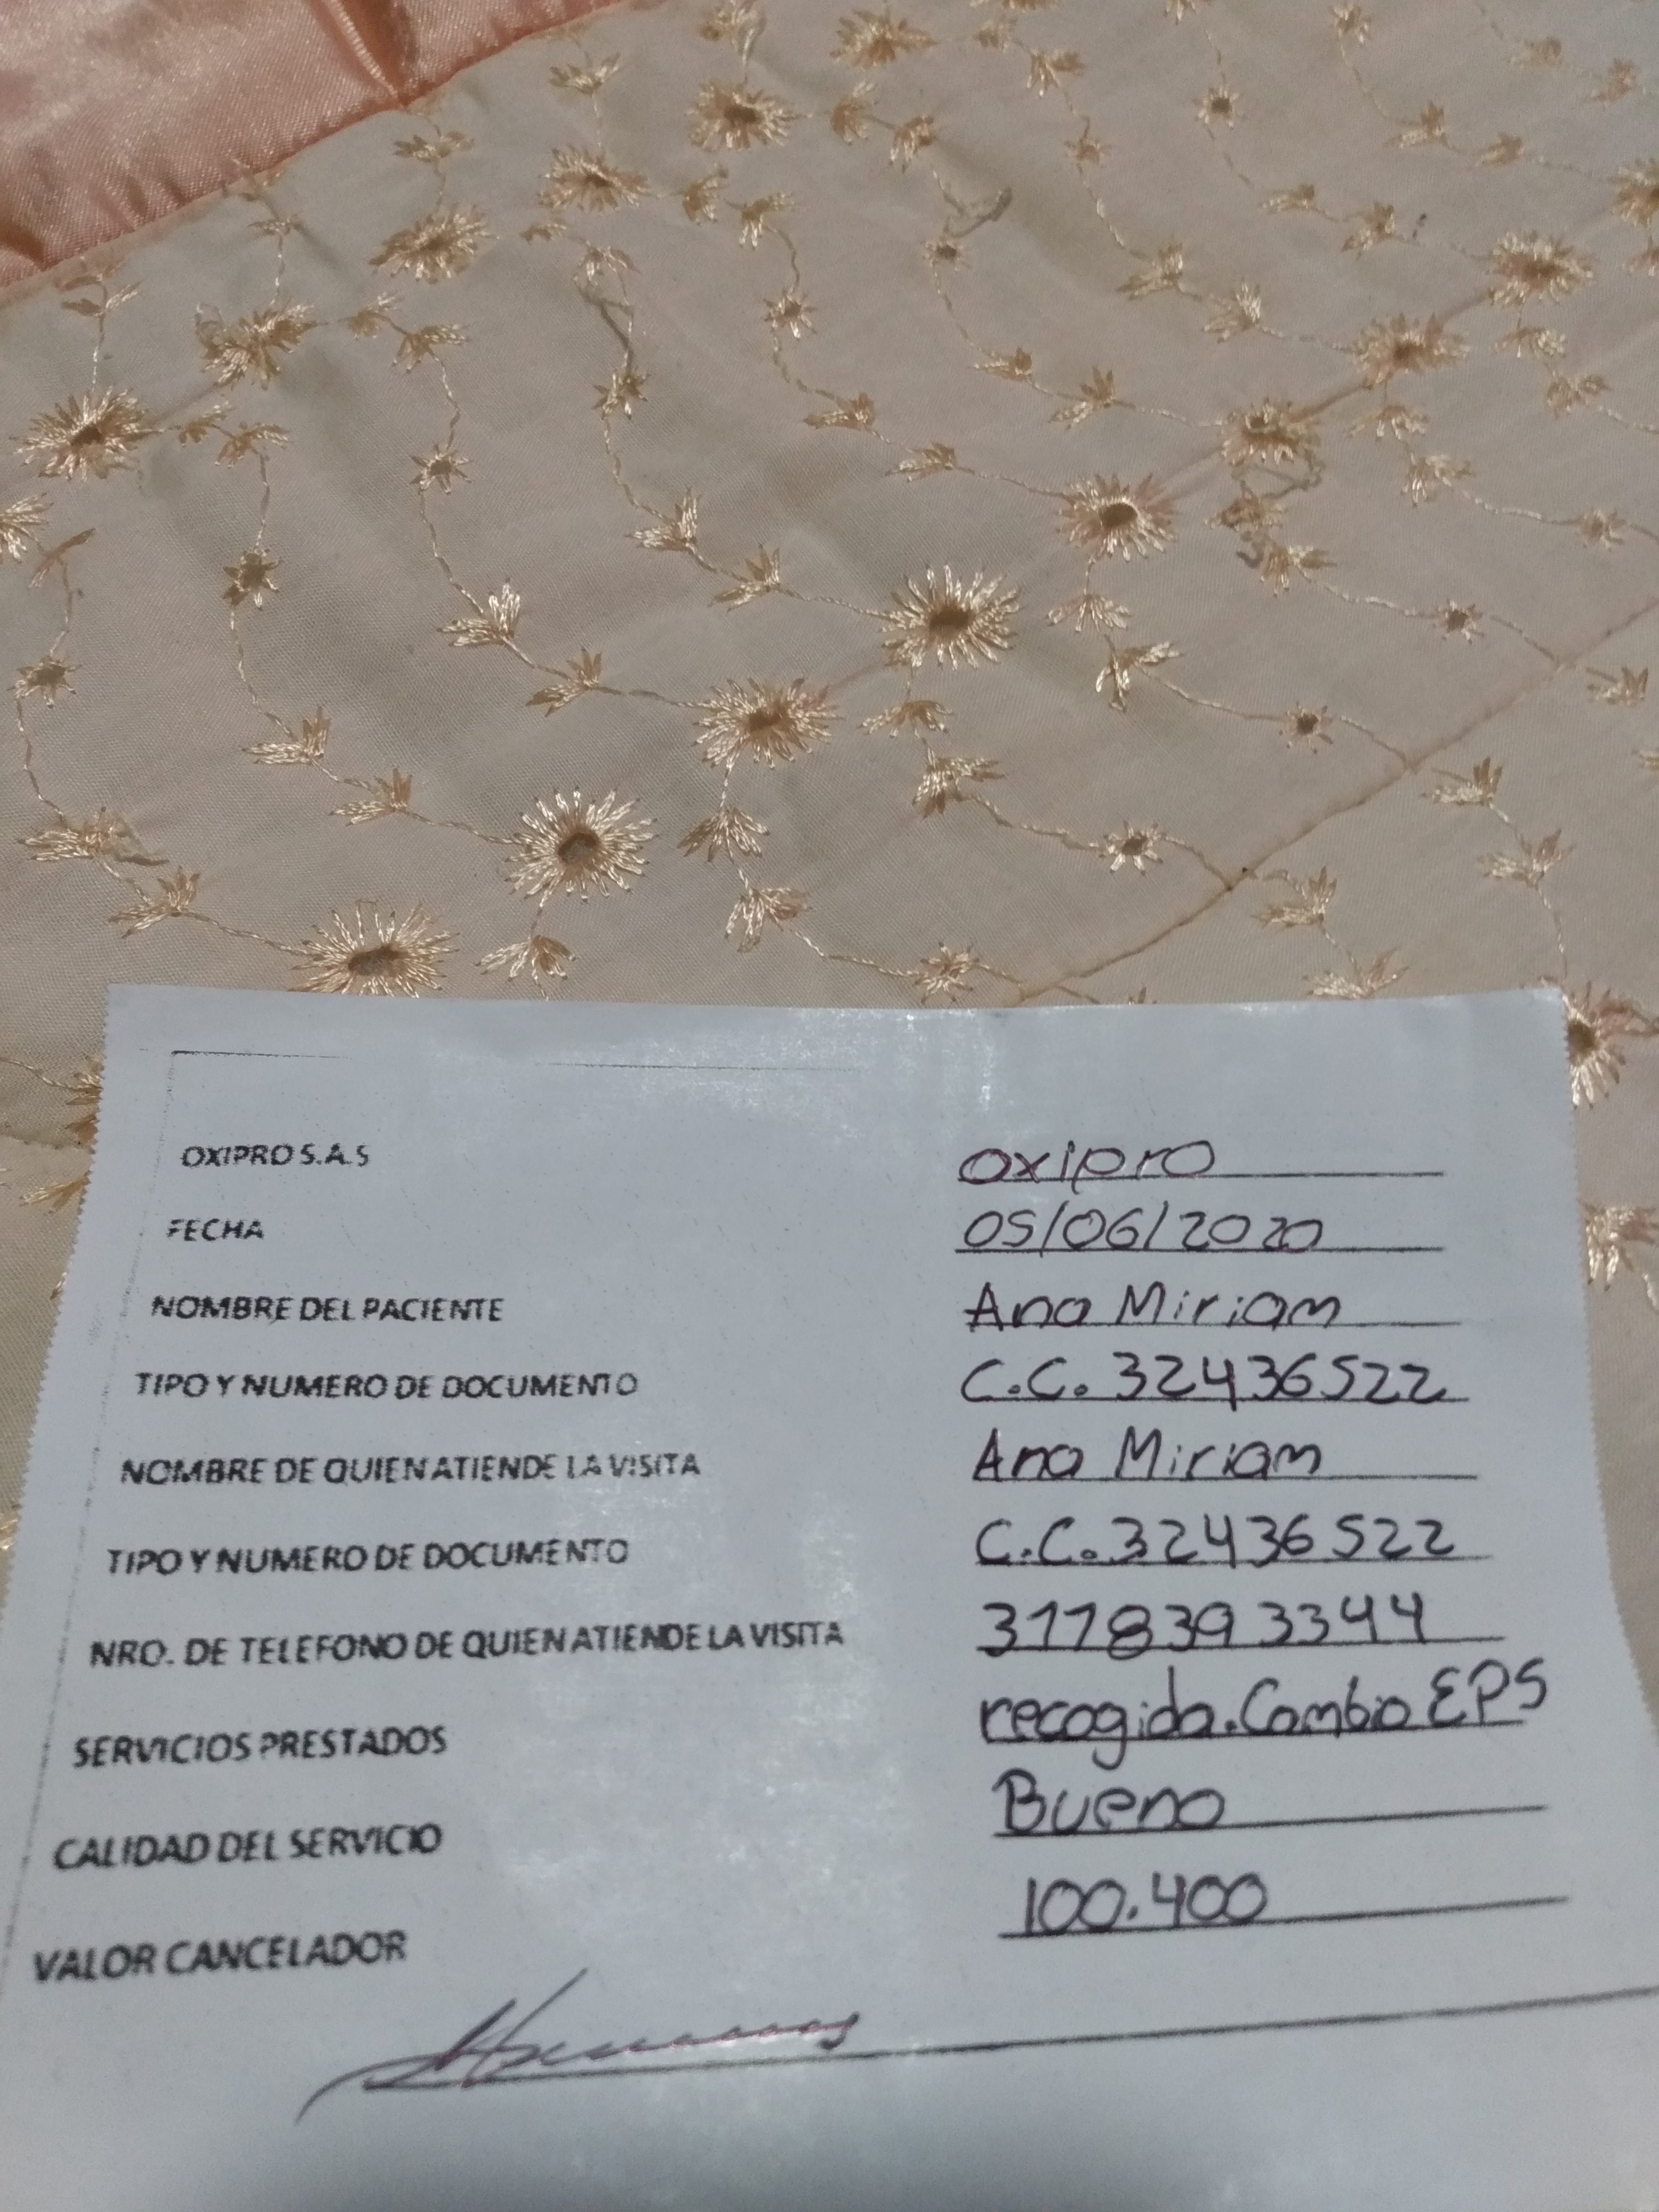 OXIPRO S.A.S oxipro
FECHA 05/06/2020
NOMBRE DEL PACIENTE Ana Miriam
TIPO Y NUMERO DE DOCUMENTO C.C. 32436522
NOMBRE DE QUIEN ATIENDE LA VISITA Ana Miriam
TIPO Y NUMERO DE DOCUMENTO C.C. 32436522
NRO. DE TELEFONO DE QUIEN ATIENDE LA VISITA 3178393344
SERVICIOS PRESTADOS recogida. Cambio EPS
CALIDAD DEL SERVICIO Bueno
VALOR CANCELADOR 100.400